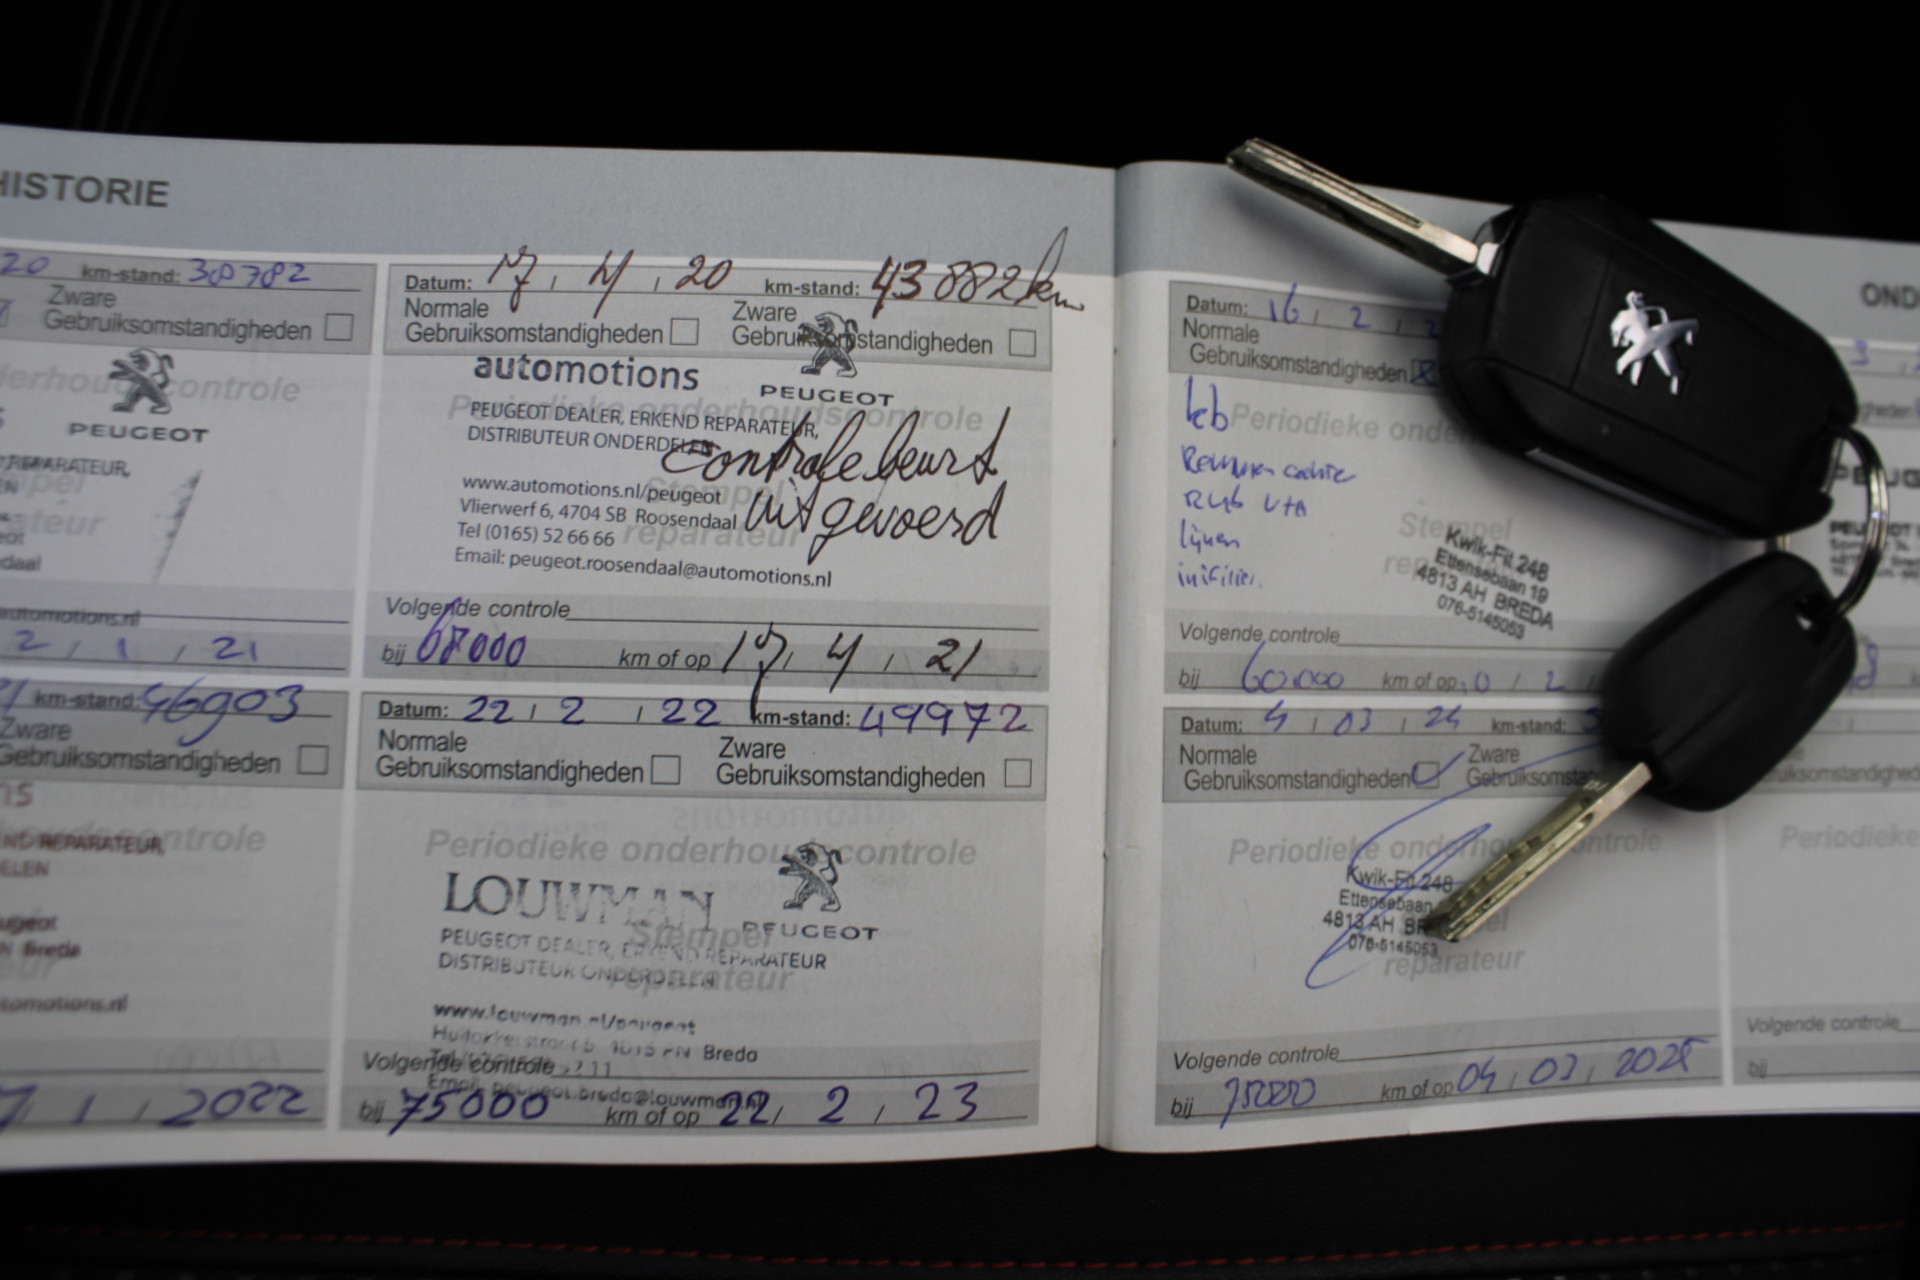 HISTORIE
20 km-stand: 38782
Zware
Gebruiksomstandigheden
controle
PEUGEOT
REPARATEUR,
automotions.nl
2 / 1 / 21
km-stand: 46903
Zware
Gebruiksomstandigheden
controle
REPARATEUR,
Breda
1 / 2022
Datum: 17 / 4 / 20 km-stand: 43882 km
Normale Zware
Gebruiksomstandigheden Gebruiksomstandigheden
automotions
PEUGEOT
Periodieke onderhoudscontrole
PEUGEOT DEALER, ERKEND REPARATEUR,
DISTRIBUTEUR ONDERDELEN
Controle beurt
uitgevoerd
www.automotions.nl/peugeot
Stempel
Vlierwerf 6, 4704 SB Roosendaal
Tel (0165) 52 66 66
reparateur
Email: peugeot.roosendaal@automotions.nl
Volgende controle
bij 68000 km of op 17 / 4 / 21
Datum: 22 / 2 / 22 km-stand: 49972
Normale Zware
Gebruiksomstandigheden Gebruiksomstandigheden
Periodieke onderhoudscontrole
LOUWMAN
PEUGEOT
Stempel
PEUGEOT DEALER, ERKEND REPARATEUR
DISTRIBUTEUR ONDERDELEN
reparateur
www.louwman.nl/peugeot
Breda
Volgende controle
Email: peugeot.breda@louwman.nl
bij 75000 km of op 22 / 2 / 23
OND
Datum: 16 / 2 /
Normale
Gebruiksomstandigheden
Periodieke
Remmen achter
lijnen
Stempel
Kwik-Fit 248
Ettensebaan 19
4813 AH BREDA
076-5145053
Volgende controle
bij 60.000 km of op
Datum: 4 / 03 / 24 km-stand:
Normale Zware
Gebruiksomstandigheden
Periodieke
Kwik-Fit 248
Ettensebaan
4813 AH
076-5145053
reparateur
Volgende controle
bij 75000 km of op 04 / 03 / 2025
Periodieke
Volgende controle
bij